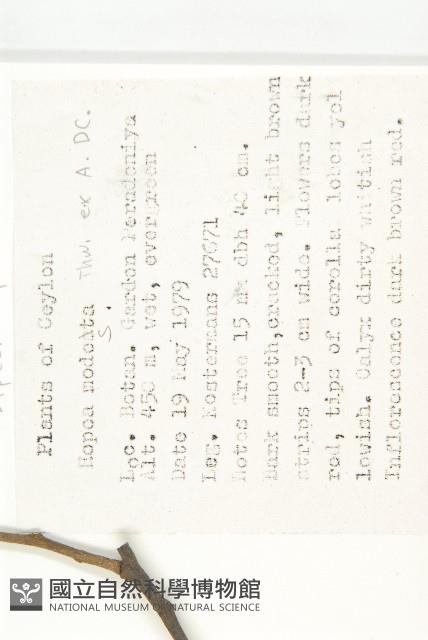 Plants of Ceylon
Hopea modelta Thw. ex A. DC.
s
Loc. Botan. Garden Peradeniya
Alt. 450 m, wet, evergreen
Date 19 May 1979
Leg. Kostermans 27671
Notes Tree 15 m dbh 40 cm.
Bark smooth, cracked, light brown
strips 2-3 cm wide. Flowers dark
red, tips of corolla lobes yel
lowish. Calyx dirty whitish
Inflorescence dark brown red.
國立自然科學博物館
NATIONAL MUSEUM OF NATURAL SCIENCE